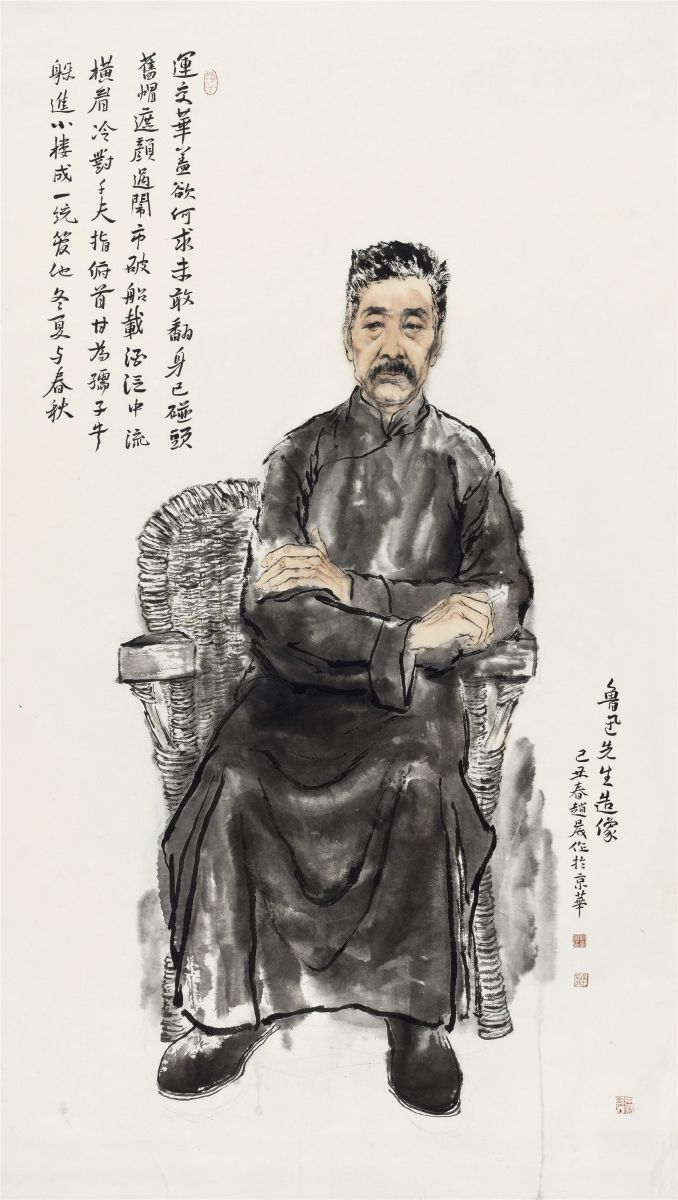 運交華蓋欲何求未敢翻身已碰頭
舊帽遮顏過鬧市破船載酒泛中流
橫眉冷對千夫指俯首甘為孺子牛
躲進小楼成一統管他冬夏与春秋
魯迅先生造像
己丑春趙晟作於京華